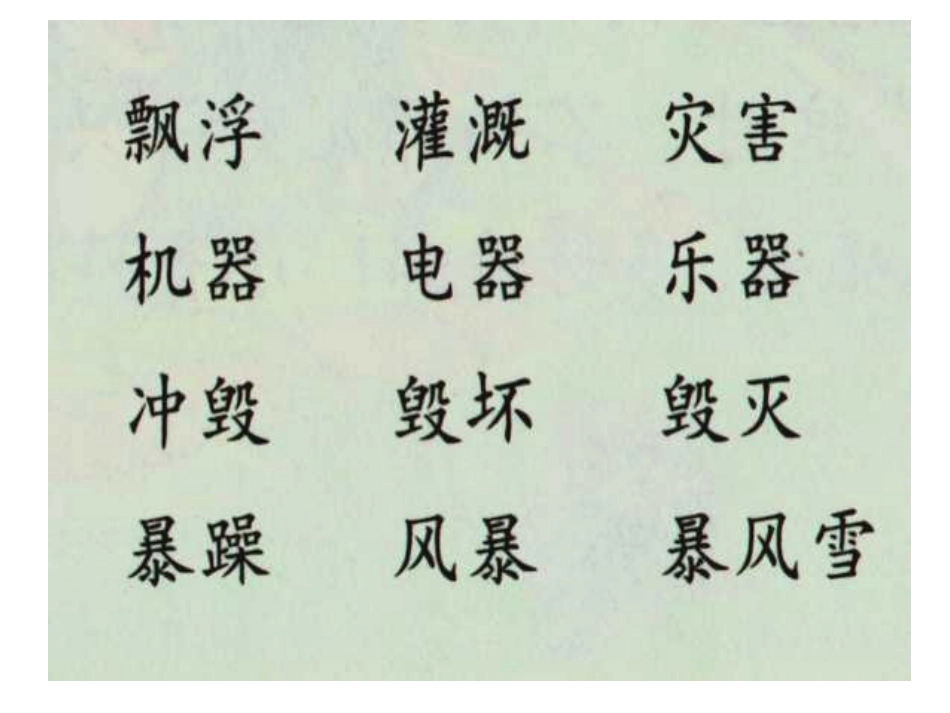 飘浮 灌溉 灾害
机器 电器 乐器
冲毁 毁坏 毁灭
暴躁 风暴 暴风雪